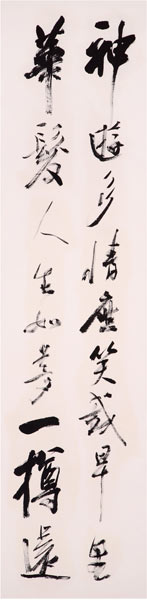 神遊多情應笑我早生
華髮人生如夢一樽還